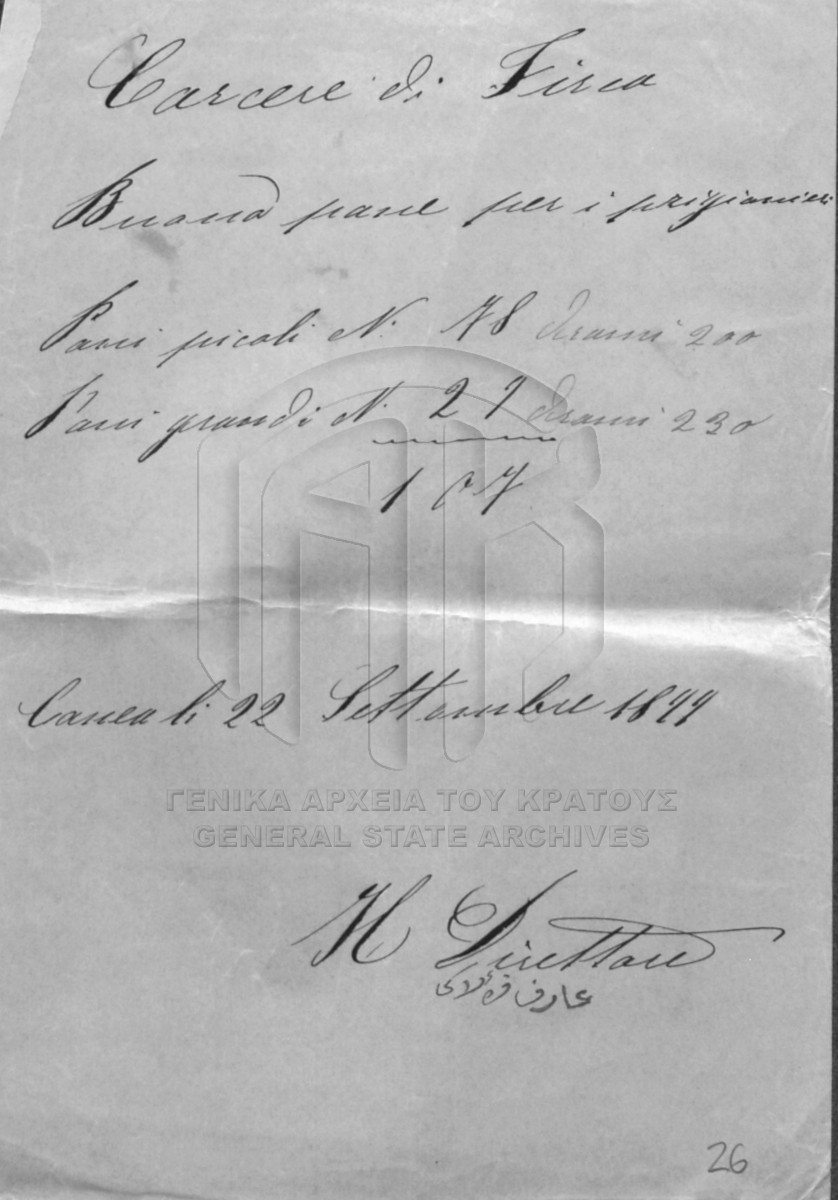 Carcere di Firca
Buono pane per i prigionieri
Pani picoli N. 78 drami 200
Pani grandi N. 29 drami 230
107
Canea li 22 Settembre 1899
ΓΕΝΙΚΑ ΑΡΧΕΙΑ ΤΟΥ ΚΡΑΤΟΥΣ
GENERAL STATE ARCHIVES
Il Direttore
عارف
26